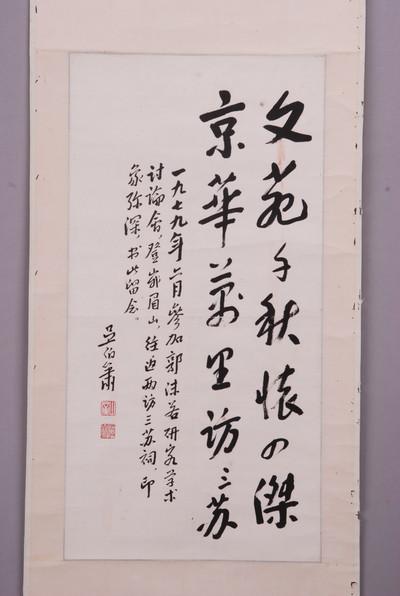 文苑千秋怀四傑
京華萬里访三苏
一九七九年六月参加郭沫若研究学术
讨论会，登峨眉山，往返两访三苏祠，印
象弥深，书此留念。
吴伯箫